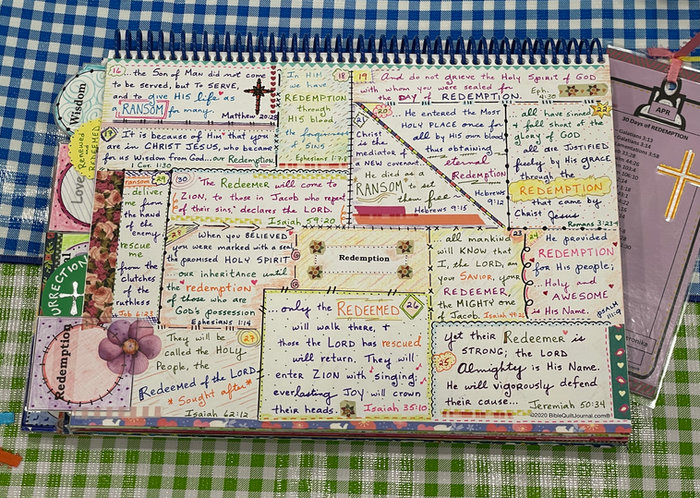 16
...the Son of Man did not come
to be served, but TO SERVE,
and to give HIS life as
RANSOM
for many.
Matthew 20:28
18
In HIM,
we have
REDEMPTION
through
HIS blood,
the forgiveness
of sins
Ephesians 1:7
19
And do not grieve the Holy Spirit of GOD
with whom you were sealed for
the DAY of REDEMPTION.
Eph.
4:30
It is because of Him that you
are in CHRIST JESUS, who became
for us Wisdom from GOD... our Redemption
1 Cor. 1:30
21
Christ
is the
mediator of a
NEW covenant.
He died as a
RANSOM to set
them free
Hebrews 9:15
He entered the Most
HOLY PLACE once for
all by his own blood
thus obtaining
eternal
Redemption
Hebrews
9:12
22
all have sinned
& fall short of the
glory of GOD
all are JUSTIFIED
freely by his GRACE
through the
REDEMPTION
that came by
Christ Jesus
Romans 3:23-4
ransom 29
deliver
from the
hand of
the
enemy
rescue
me
from the
clutches
of the
ruthless
Job 6:23
30
The Redeemer will come to
ZION, to those in Jacob who repent
of their sins," declares the LORD.
Isaiah 59:20
23
When you BELIEVED
you were marked with a seal,
the promised HOLY SPIRIT
our inheritance until
the redemption
of those who
are GOD's possession
Ephesians 1:14
Redemption
all mankind
will KNOW that
I, the LORD, am
your SAVIOR, your
REDEEMER,
the MIGHTY one
of Jacob.
24
He provided
REDEMPTION
for His people;
... Holy and
AWESOME
is His Name.
27
They will be
called the HOLY
People, the
Redeemed of the LORD.
* Sought after *
Isaiah 62:12
26
...only the REDEEMED
will walk there, &
those the LORD has rescued
will return. They will
enter ZION with singing;
everlasting JOY will crown
their heads.
Isaiah 35:10
25
Yet their Redeemer is
STRONG; the LORD
Almighty is His Name.
He will vigorously defend
their cause...
Jeremiah 50:34
©2020 BibleQuiltJournal.com®
Wisdom
Love
Redemption
APR
30 Days of REDEMPTION